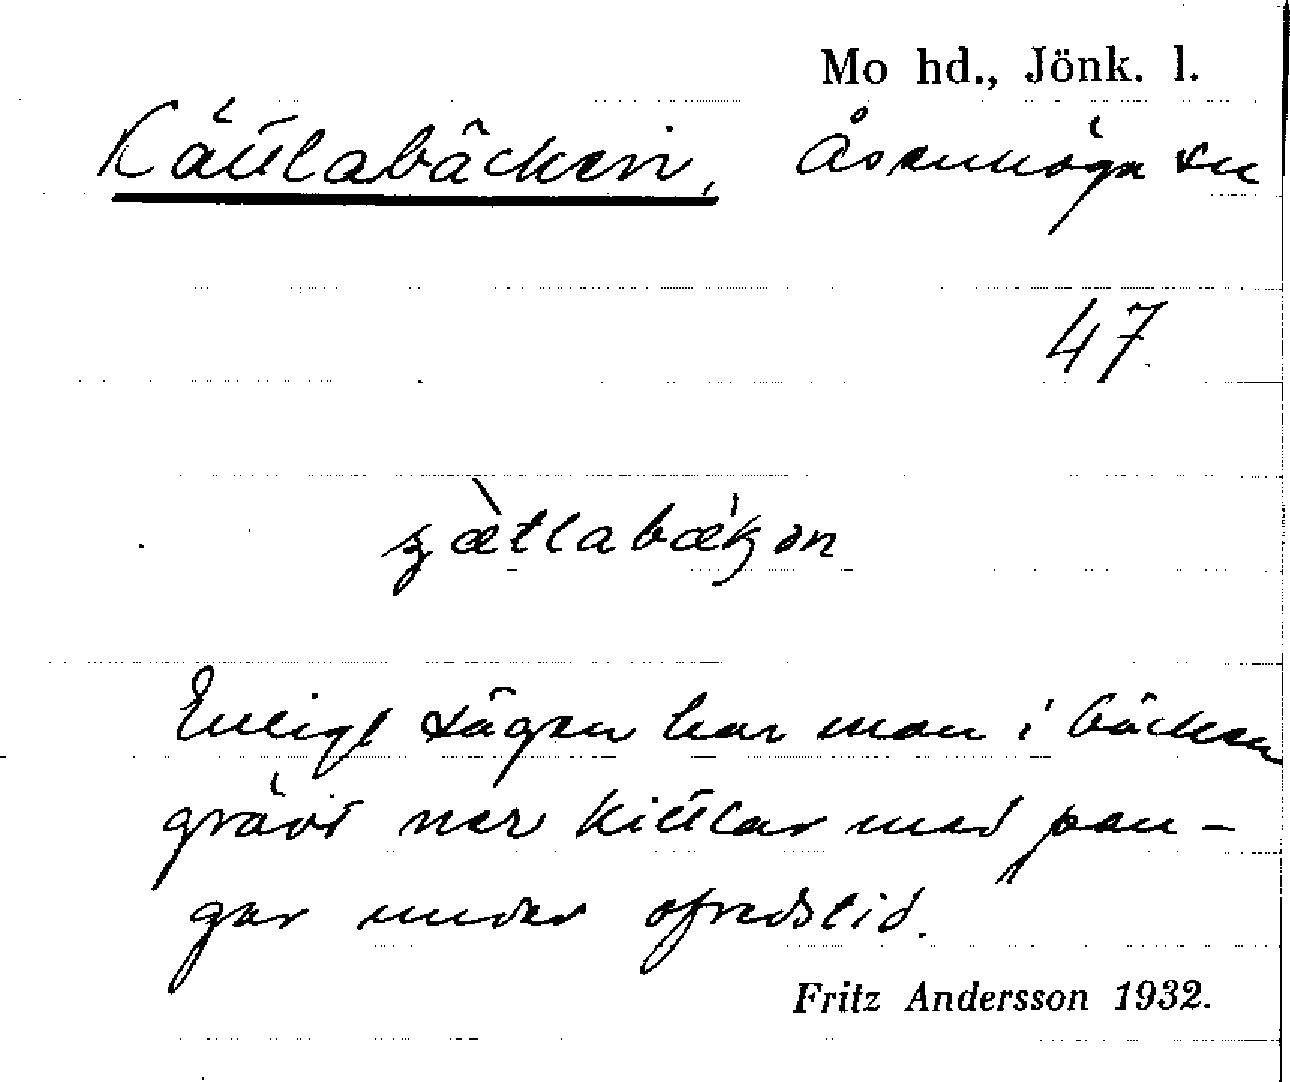 Mo hd., Jönk. l.
Kättlabäcken, Åsenhöga sn
47
Enligt sägen har man i bäcken
grävt ner kittlar med pen-
gar under ofredstid.
Fritz Andersson 1932.